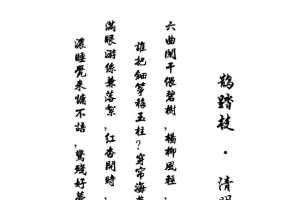 鵲踏枝 · 清明
六曲闌干偎碧樹,楊柳風輕,
誰把鈿箏移玉柱?穿簾海燕
滿眼游絲兼落絮,紅杏開時,
濃睡覺來慵不語,驚殘好夢